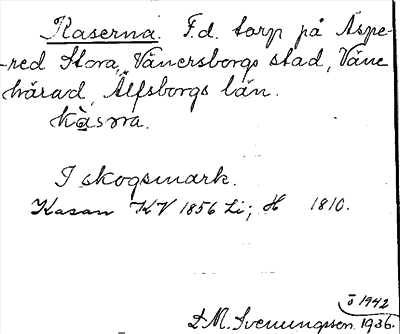 Kaserna. F.d. torp på Äspe-
-red Stora, Vänersborgs stad, Väne
härad, Älfsborgs län.
I skogsmark.
Kasan KV 1856 Li; H 1810.
ö 1942
D.M. Svenungsson 1936.